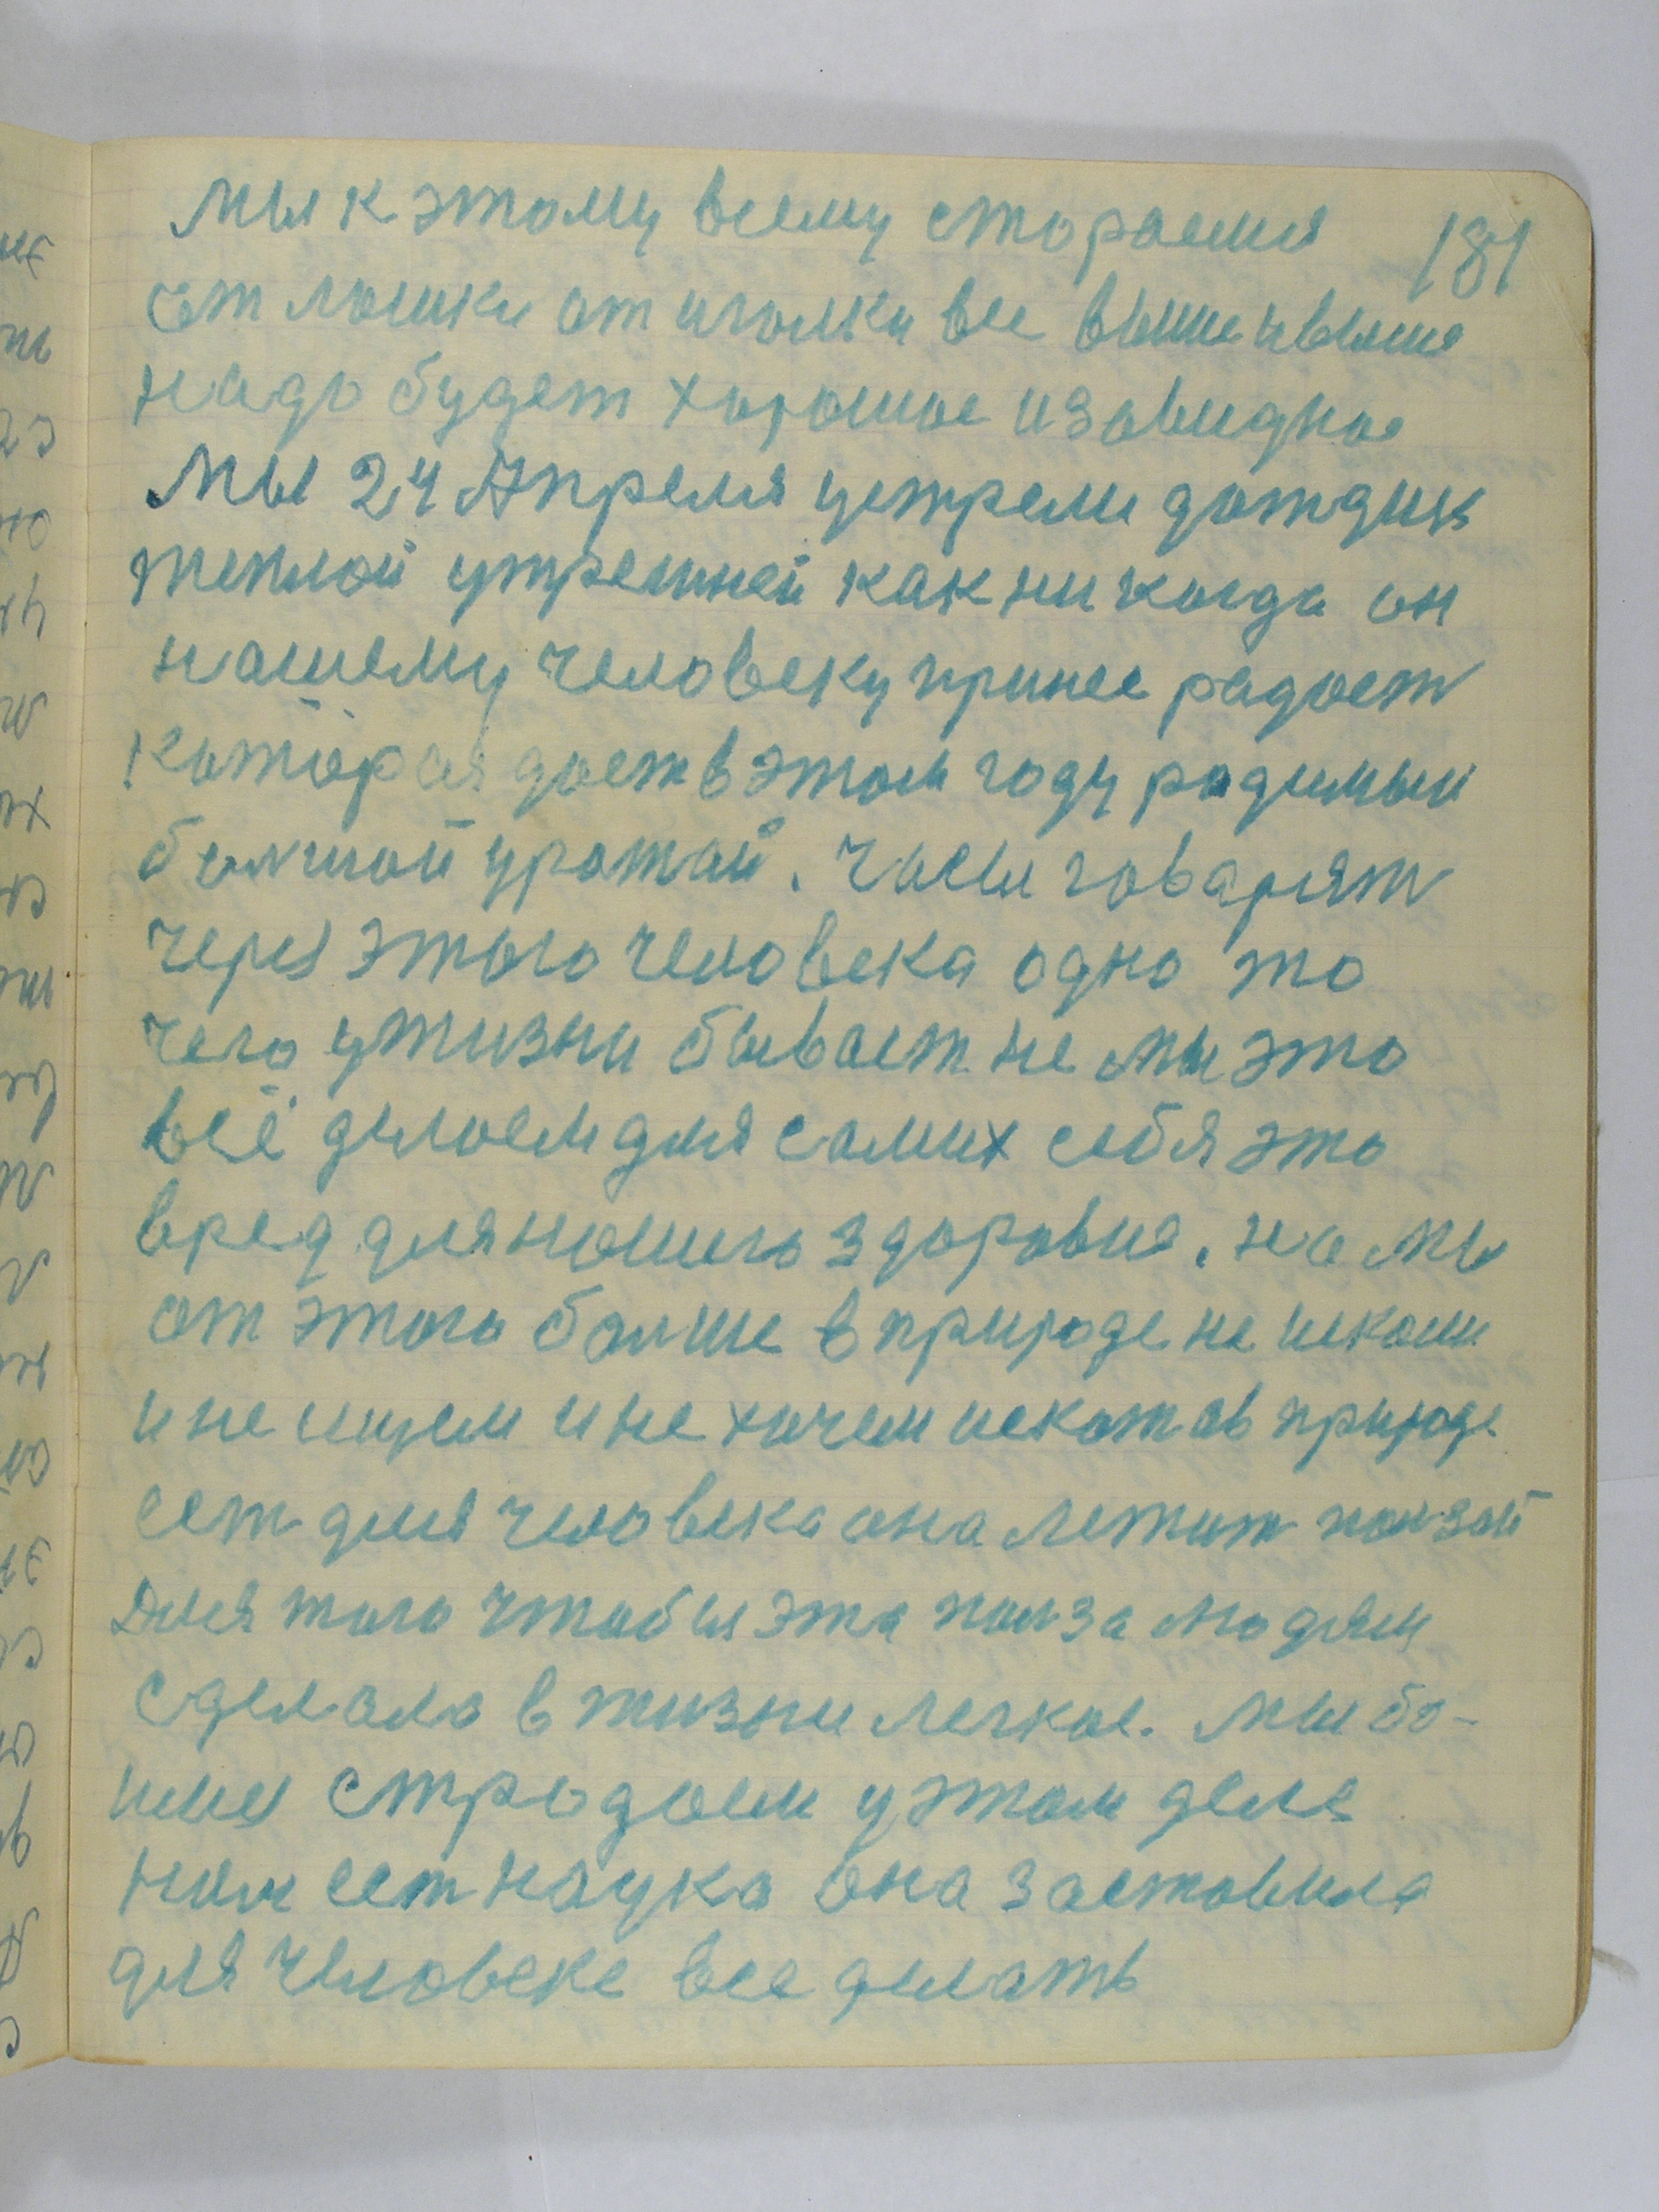 мы к этому всему стораемя 181
от ложки от иголки все выше и выше
надо будет хорошое и завидное
Мы 24 Апреля устрели дождик
теплой утрешней как ни когда он
нашему человеку принес радост
которая дает в этом году родимый
болшой урожай. Часы говарят
через этого человека одно то
чего у жизни бывает не мы это
всё делаем для самих себя это
вред для нашего здоровия. на мы
от этого болше в природе не искали
и не ищем и не хочем искат а в природе
ест для человека она лежит ползай
для того чтобы эта полза людям
сделала в жизни легкое. Мы бо-
лше страдаем у этом деле
нам ест наука она заставила
для человека все делать